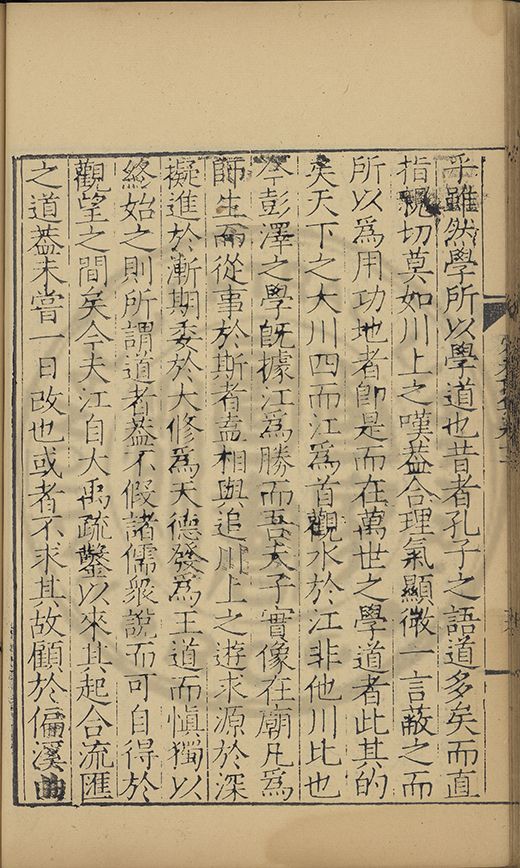 乎雖然學所以學道也昔者孔子之語道多矣而直
指親切莫如川上之嘆葢合理氣顯微一言蔽之而
所以爲用功地者即是而在萬世之學道者此其的
矣天下之大川四而江爲首觀水於江非他川比也
今彭澤之學旣據江爲勝而吾夫子實像在廟凡爲
師生而從事於斯者盍相與追川上之遊求源於深
擬進於漸期委於大修爲天德發爲王道而愼獨以
終始之則所謂道者葢不假諸儒衆說而可自得於
觀望之間矣今夫江自大禹疏鑿以來其起合流匯
之道葢未嘗一日改也或者不求其故顧於偏溪曲